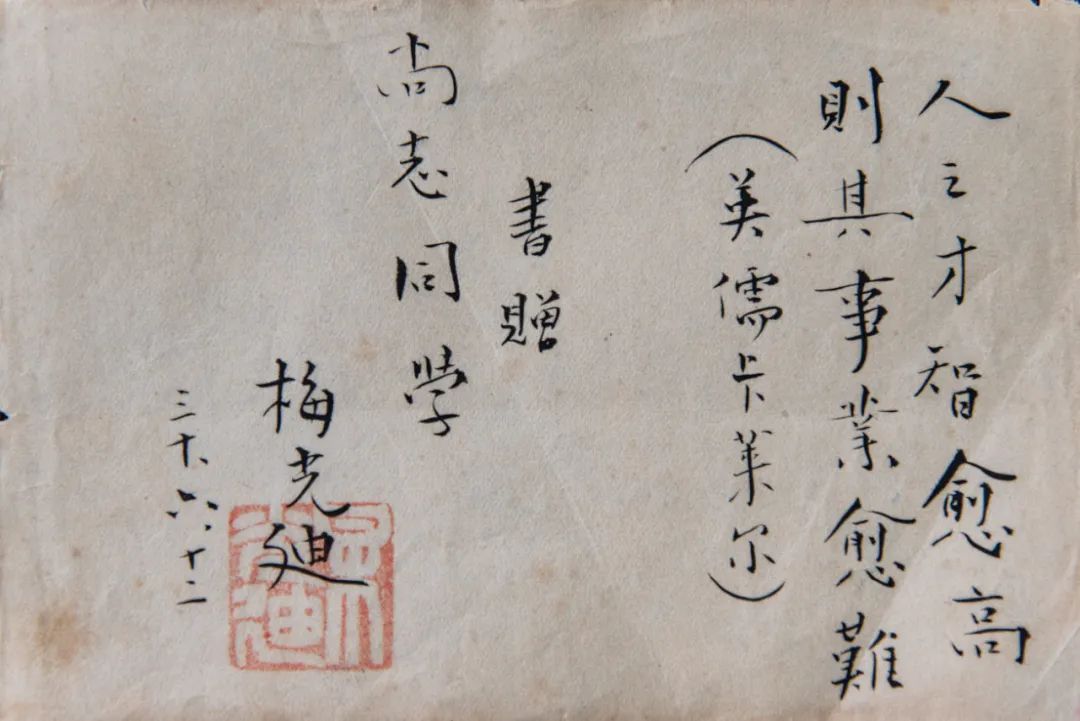 人之才智愈高
則其事業愈難
(英儒卡莱尔)
書贈
尚志同學
梅光廸
三十、六、十二